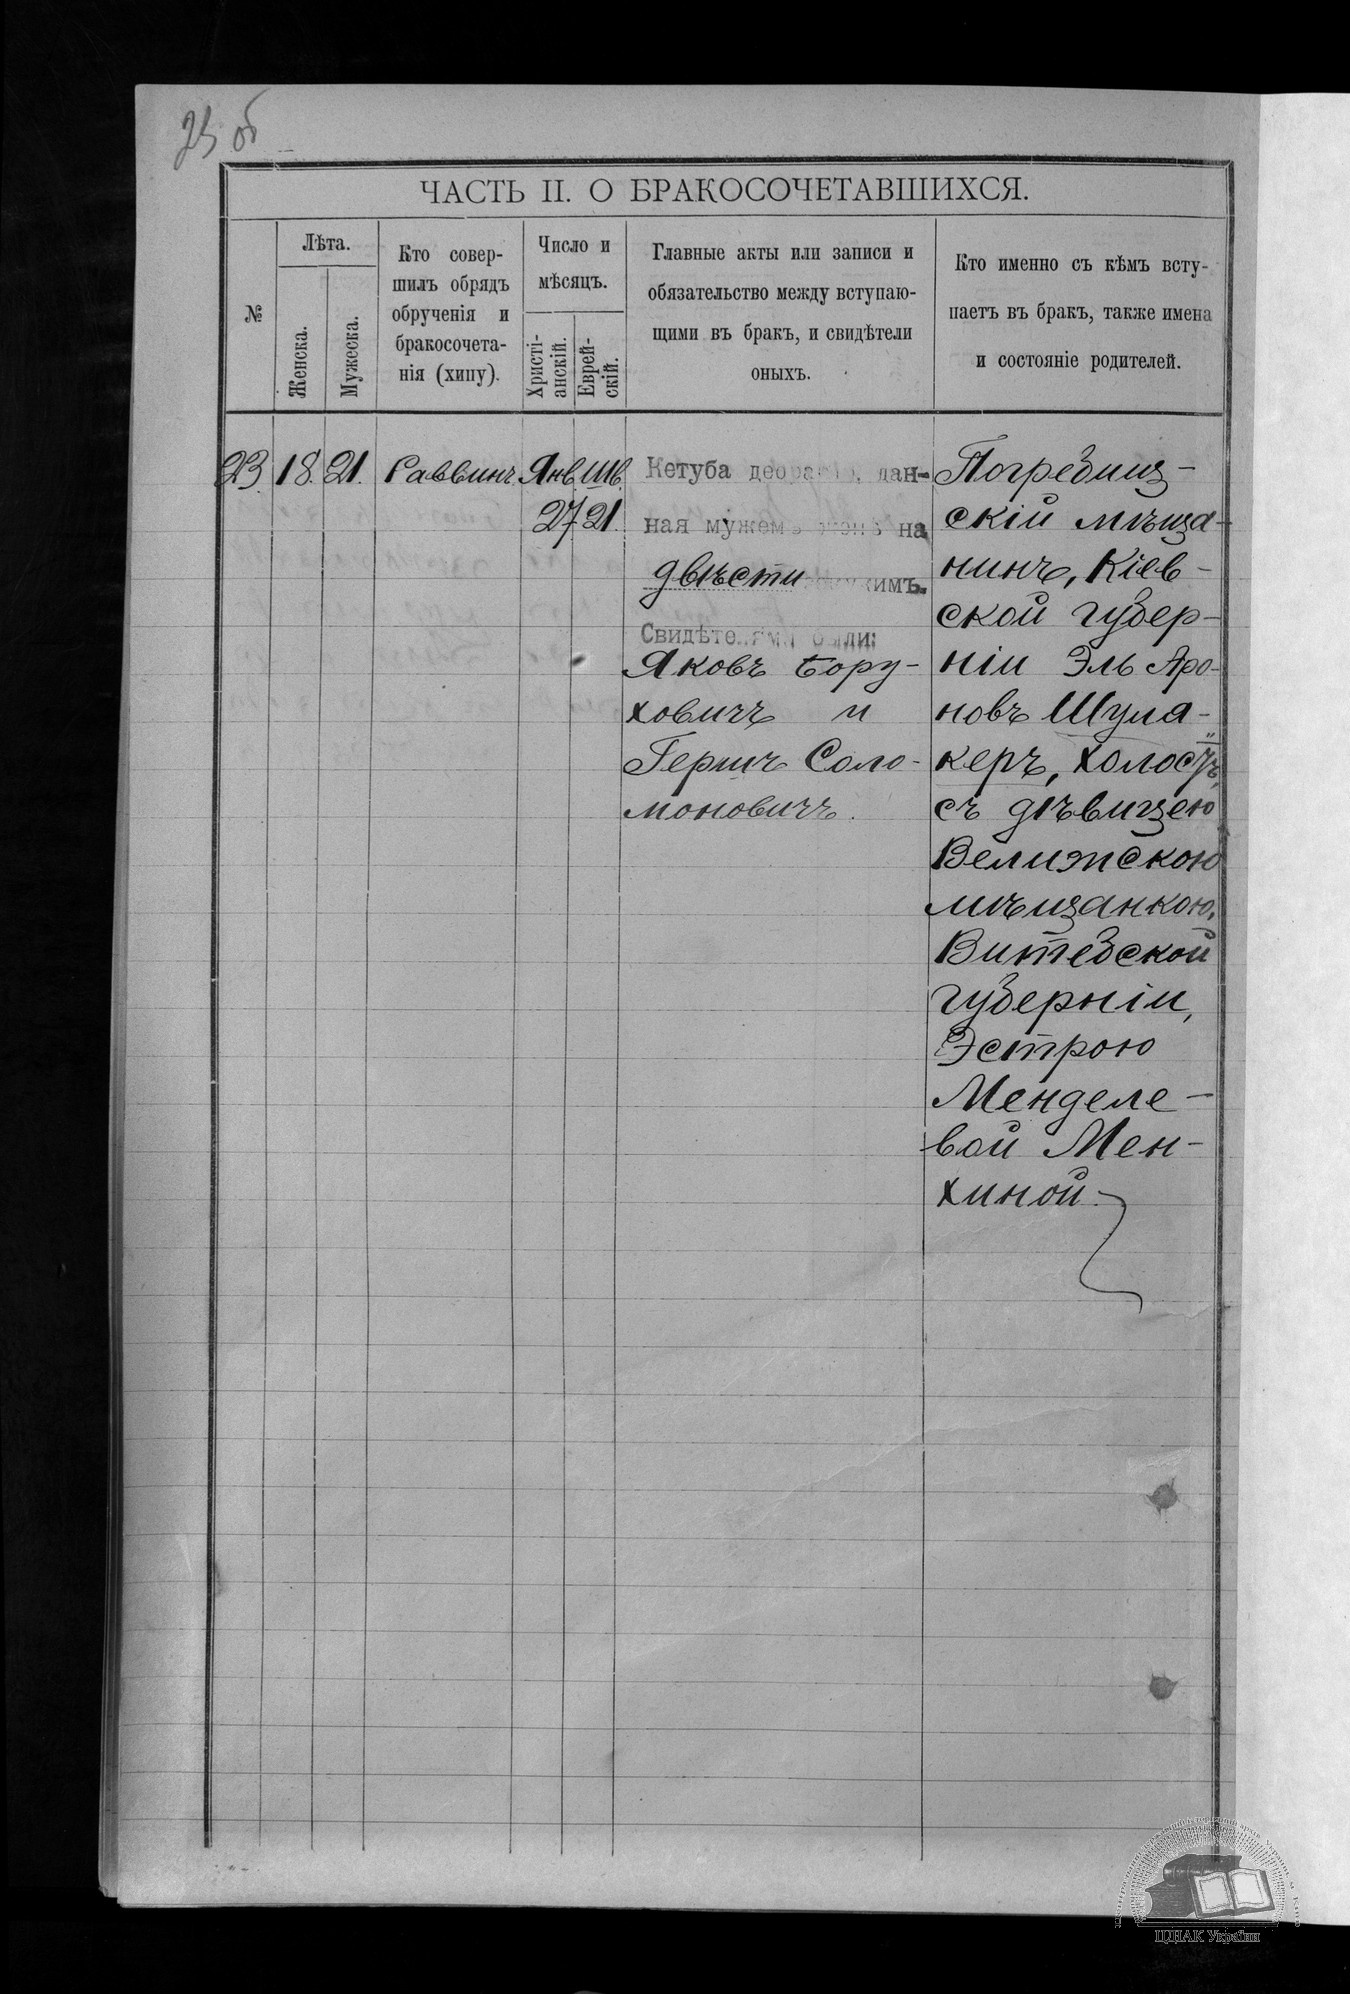 25 об
ЧАСТЬ II. О БРАКОСОЧЕТАВШИХСЯ.
№
Лѣта.
Женска.
Мужеска.
Кто совер-
шилъ обрядъ
обрученія и
бракосочета-
нія (хипу).
Число и
мѣсяцъ.
Христі-
анскій.
Еврей-
скій.
Главные акты или записи и
обязательство между вступаю-
щими въ бракъ, и свидѣтели
оныхъ.
Кто именно съ кѣмъ всту-
паетъ въ бракъ, также имена
и состояніе родителей.
23. 18. 21. Раввинъ Янв. Шв.
27 21.
Кетуба деорайто, дан-
ная мужемъ женѣ на
двѣсти
Свидѣтелями были:
Яковъ Бору-
ховичъ и
Гершъ Соло-
моновичъ.
Погребищ-
скій мѣща-
нинъ, Кіев-
ской губер-
ніи Эль Аро-
новъ Шуля-
керъ, холостъ,
съ дѣвицею
Велижскою
мѣщанкою,
Витебской
губерніи,
Эстрою
Менделе-
вой Мен-
хиной.
ЦДІАК України